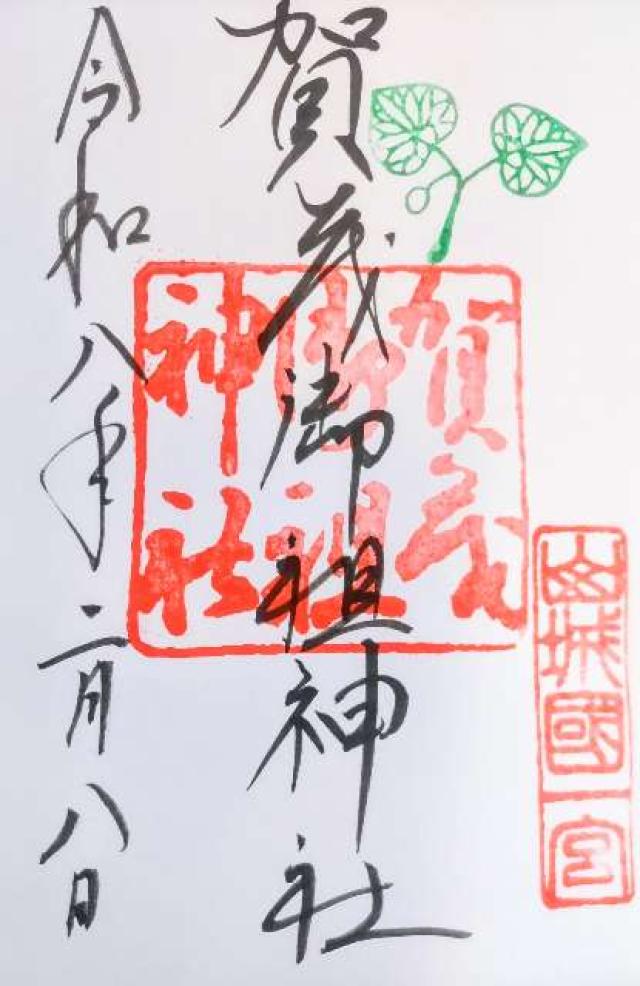 山城國一宮
賀茂御祖神社
賀茂
御祖
神社
令和八年二月八日